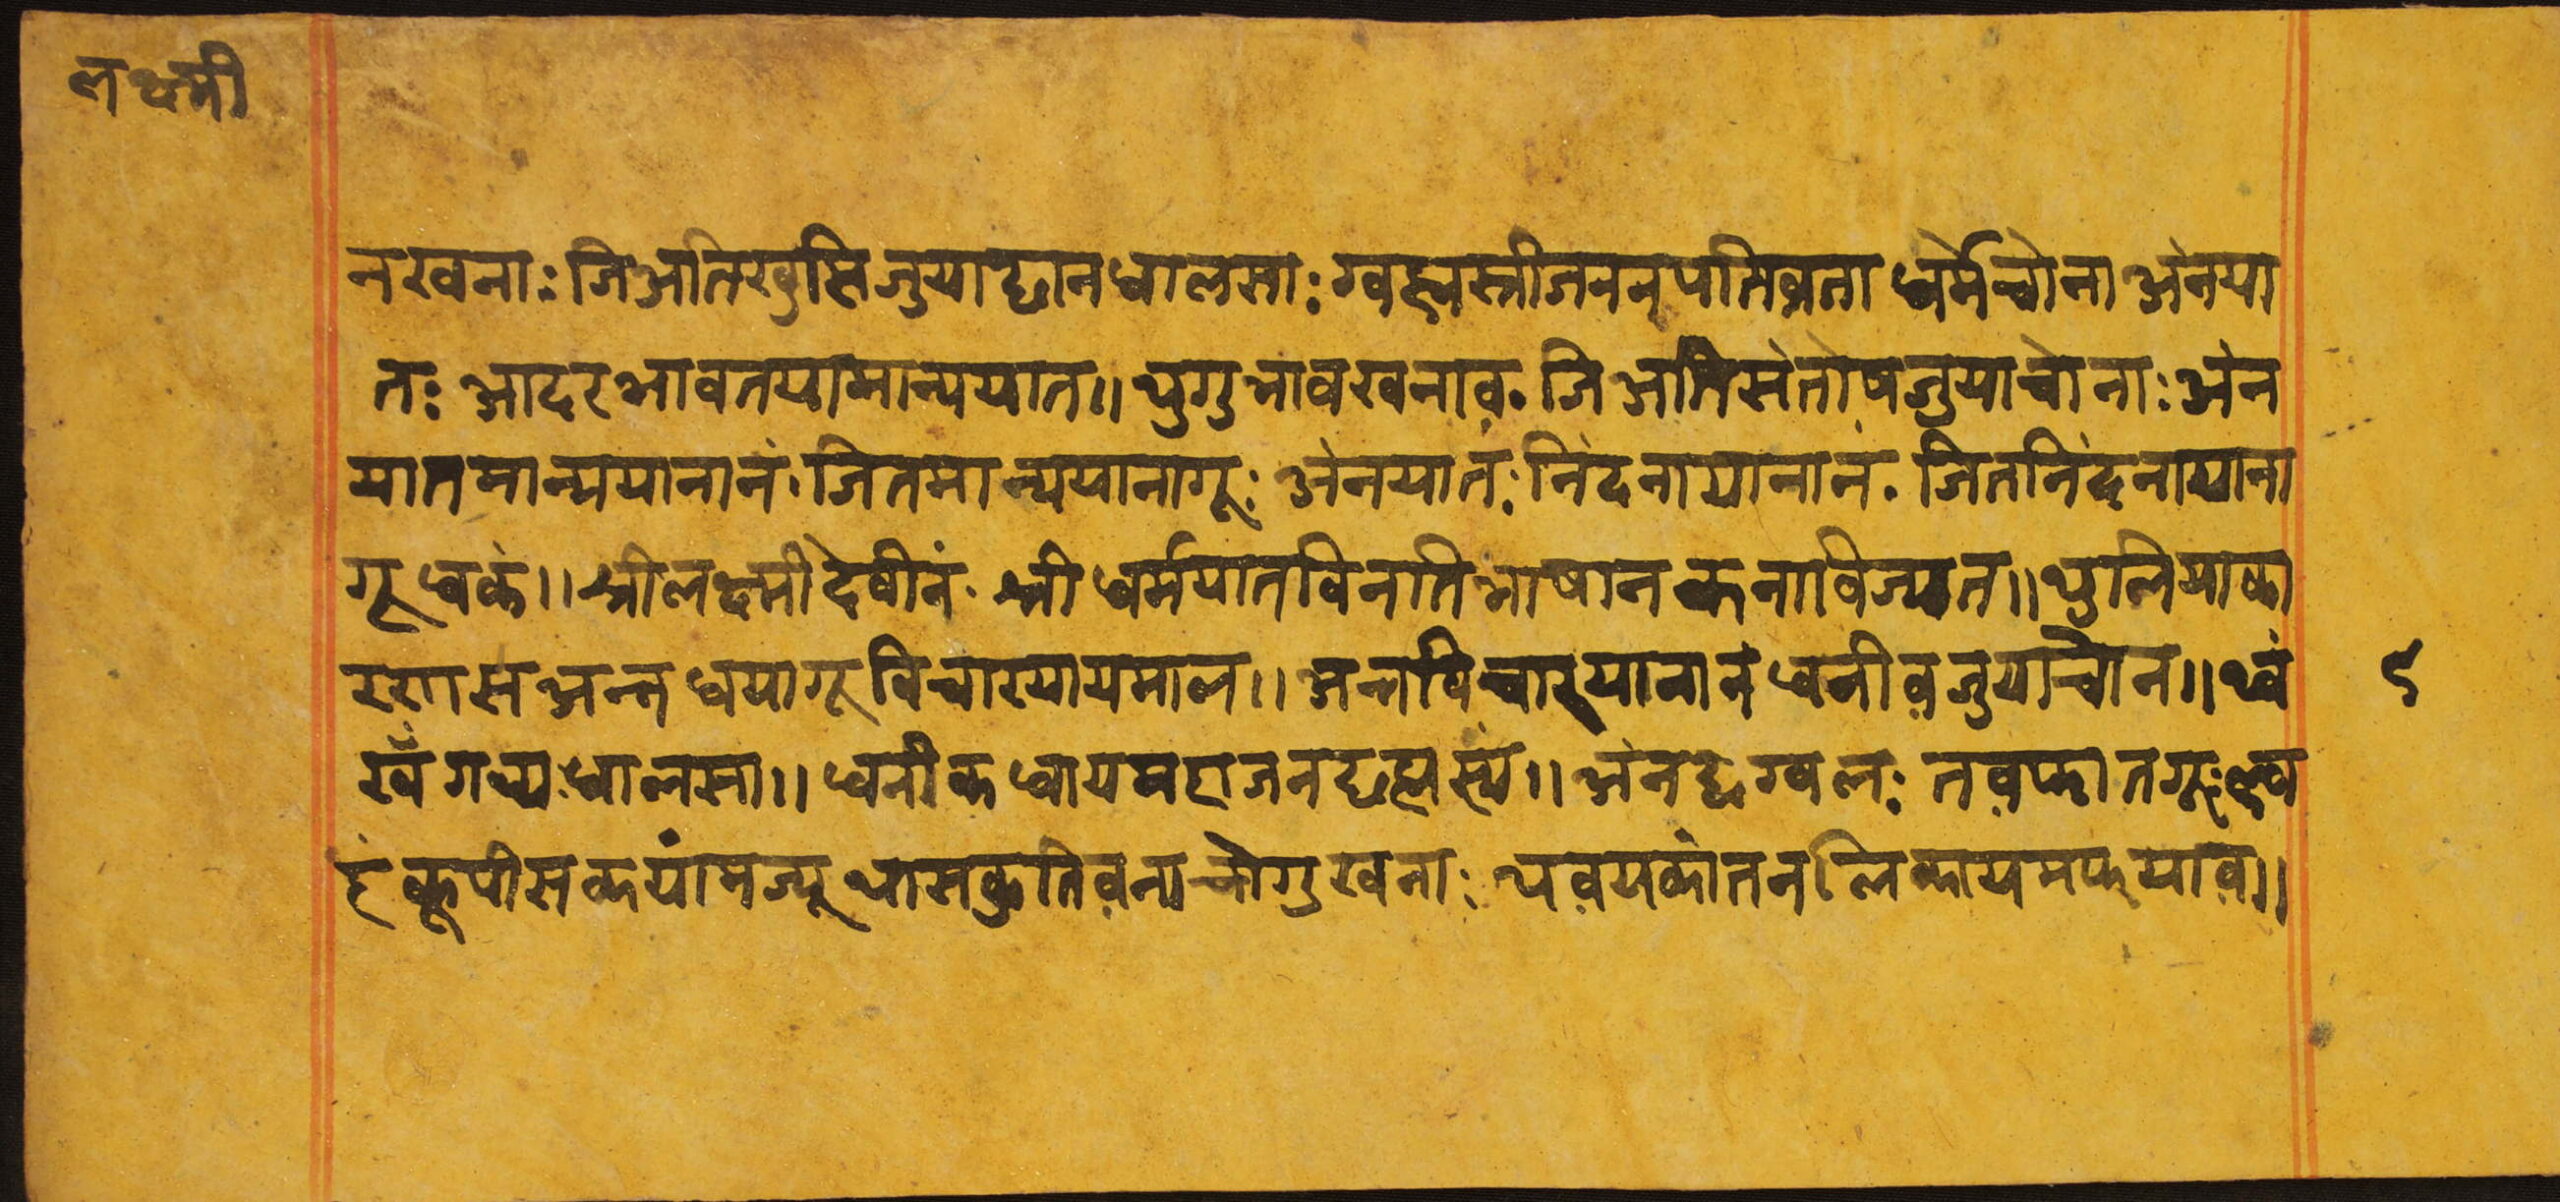 लक्ष्मी
नखना: जिअतिखुसिजुयाद्यानधालसा: ग्वह्मस्त्रीजननपतिव्रता धर्मचोना अनया
त: आदरभावतयामान्ययात॥ थुगुभावखनाव. जिअतिसंतोषजुयाचोना: अन
यातमान्ययानानं. जितमान्ययानागू: अनयात: निंदनायानानं. जितनिंदनायाना
गू धकं॥ श्रीलक्ष्मीदेवीनं. श्रीधर्मयातविनतिभाषानकनाविज्यात॥ थुलियाका
रणास अन्तधयागू विचारयायमाल॥ अन्तविचारयानानं धनीवजुयाचोन॥ थ्व
खँ गथ्य धालसा॥ धनीकधायमहाजनछह्मस्यं॥ अनछेग्वल: तवफातगू
कूपीसकयां मज्यू थासकुतिवन्यचोगुखना: थवयकातनलिकायमफयाव॥
९